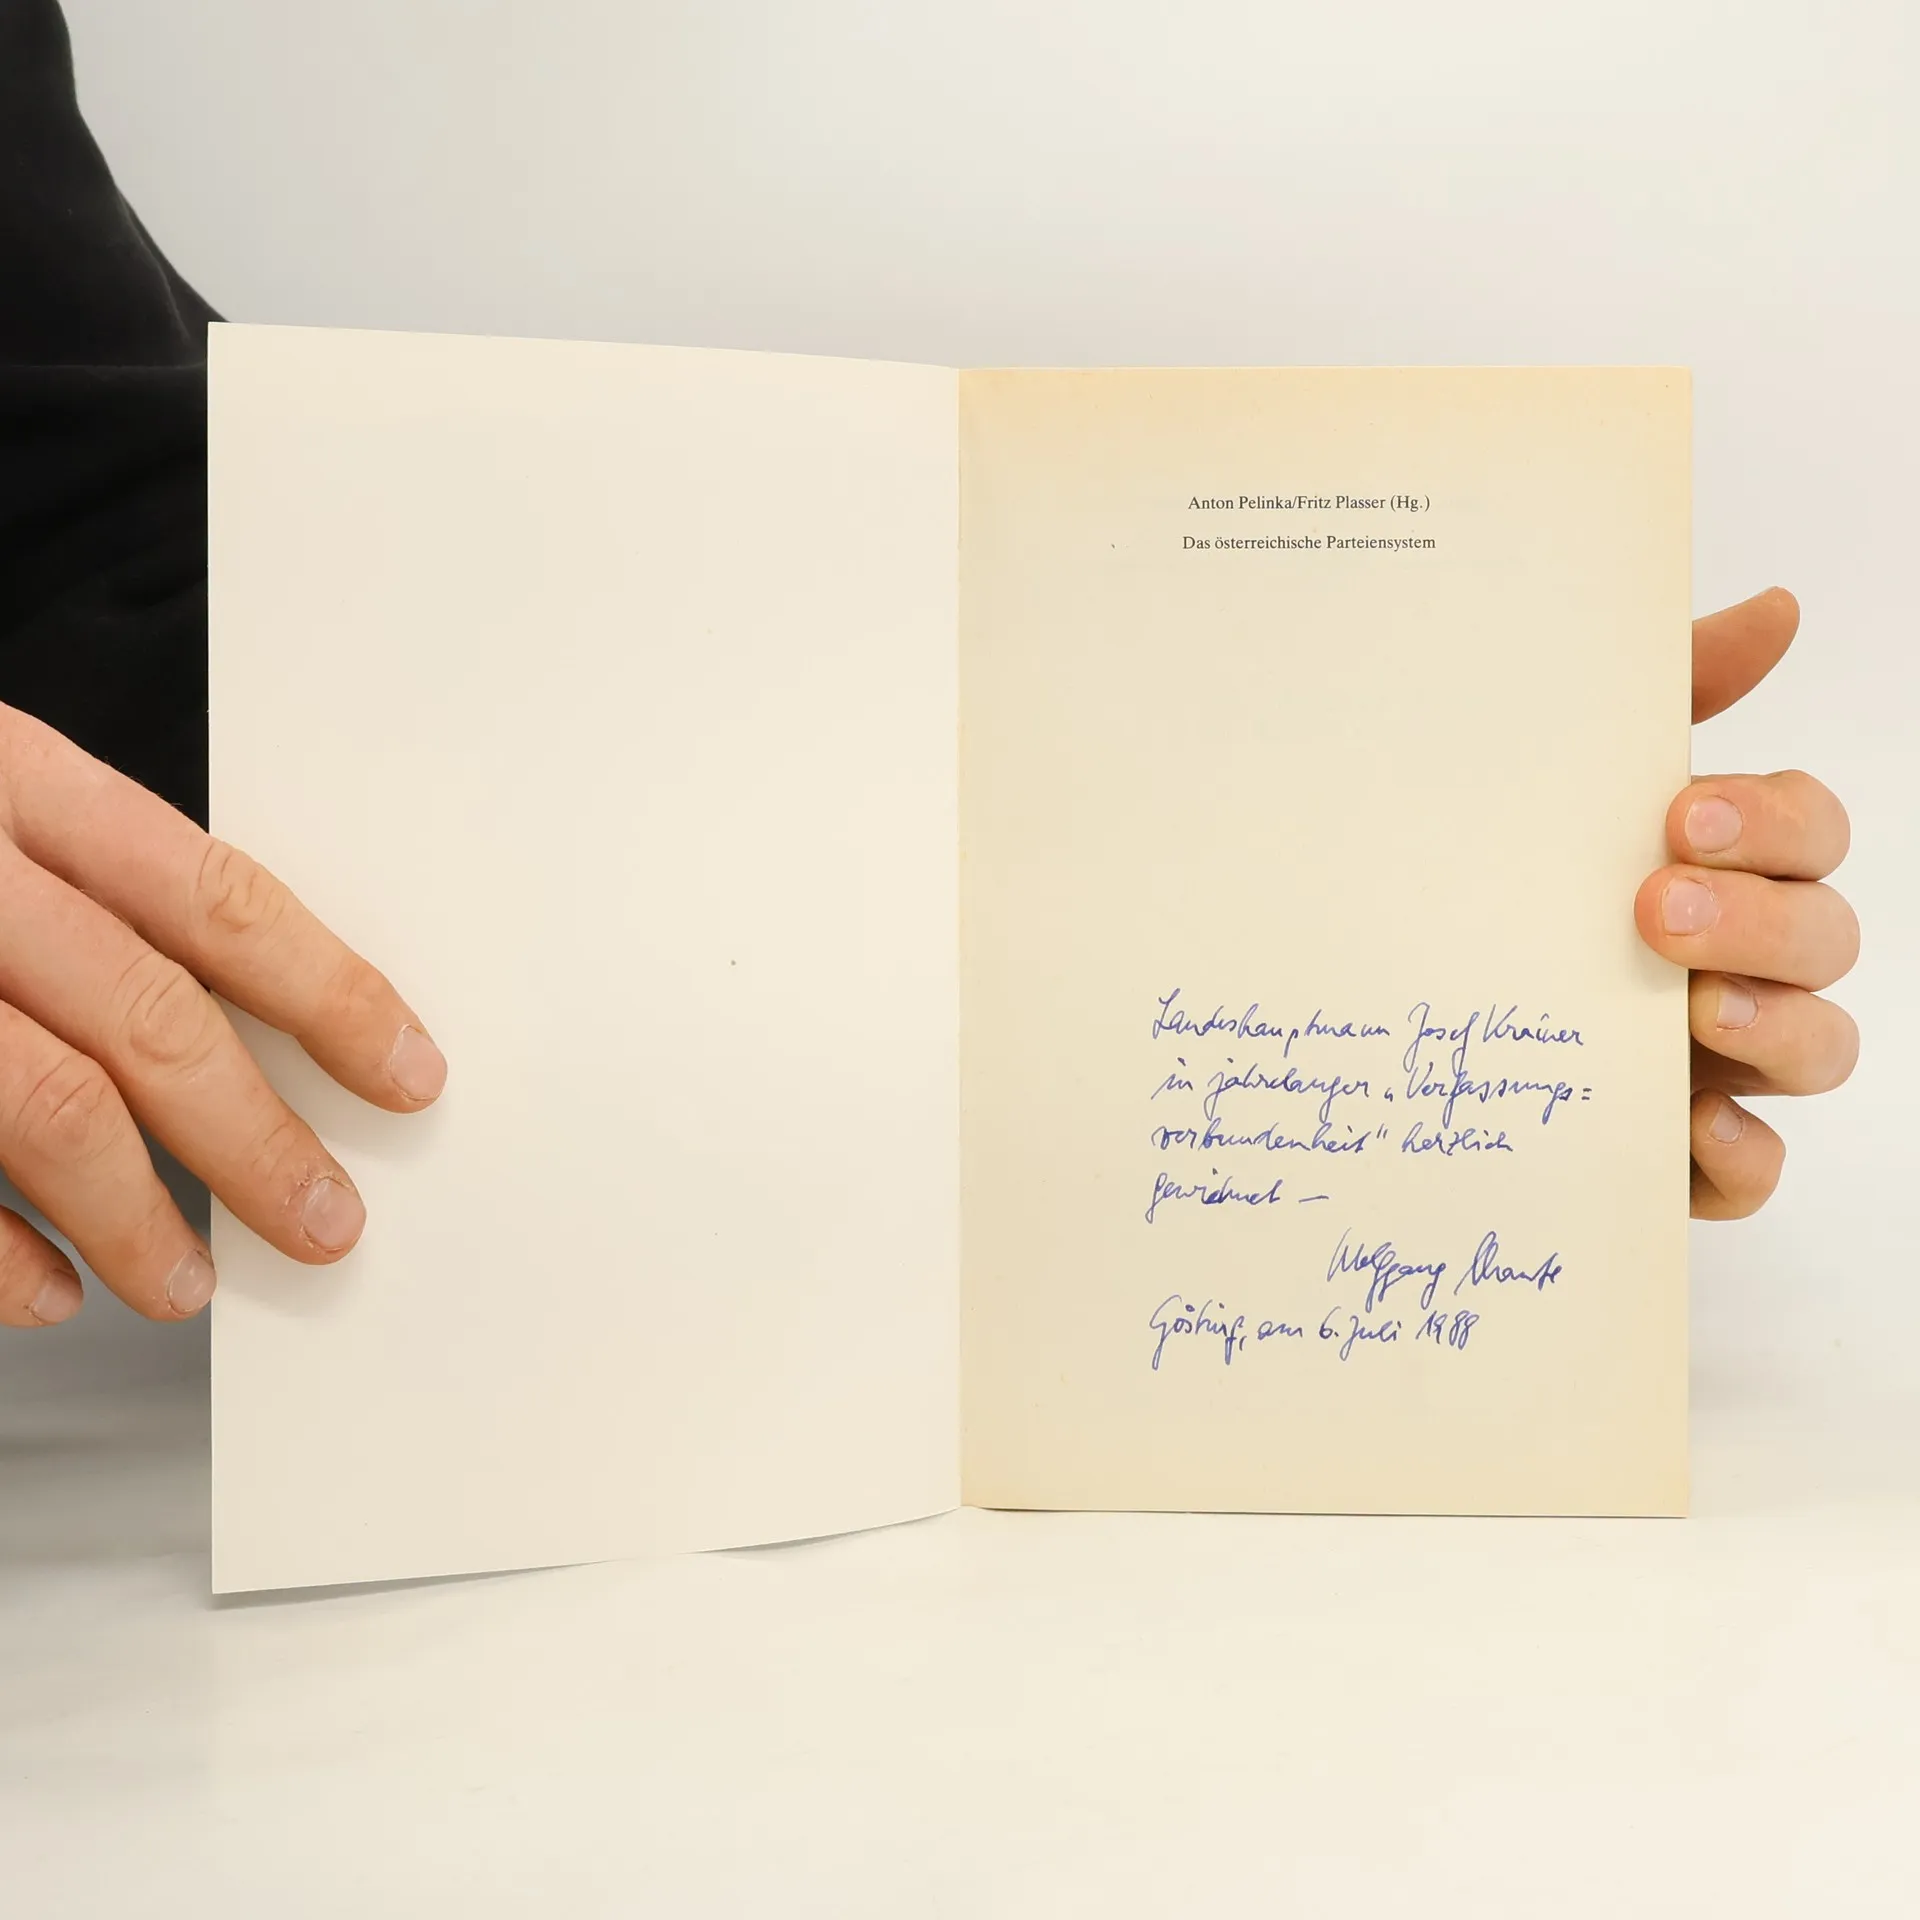 Anton Pelinka/Fritz Plasser (Hg.)
Das österreichische Parteiensystem
Landeshauptmann Josef Krainer
in jahrelanger „Verfassungs=
verbundenheit" herzlich
gewidmet —
Wolfgang Mantl
Gösting, am 6. Juli 1988